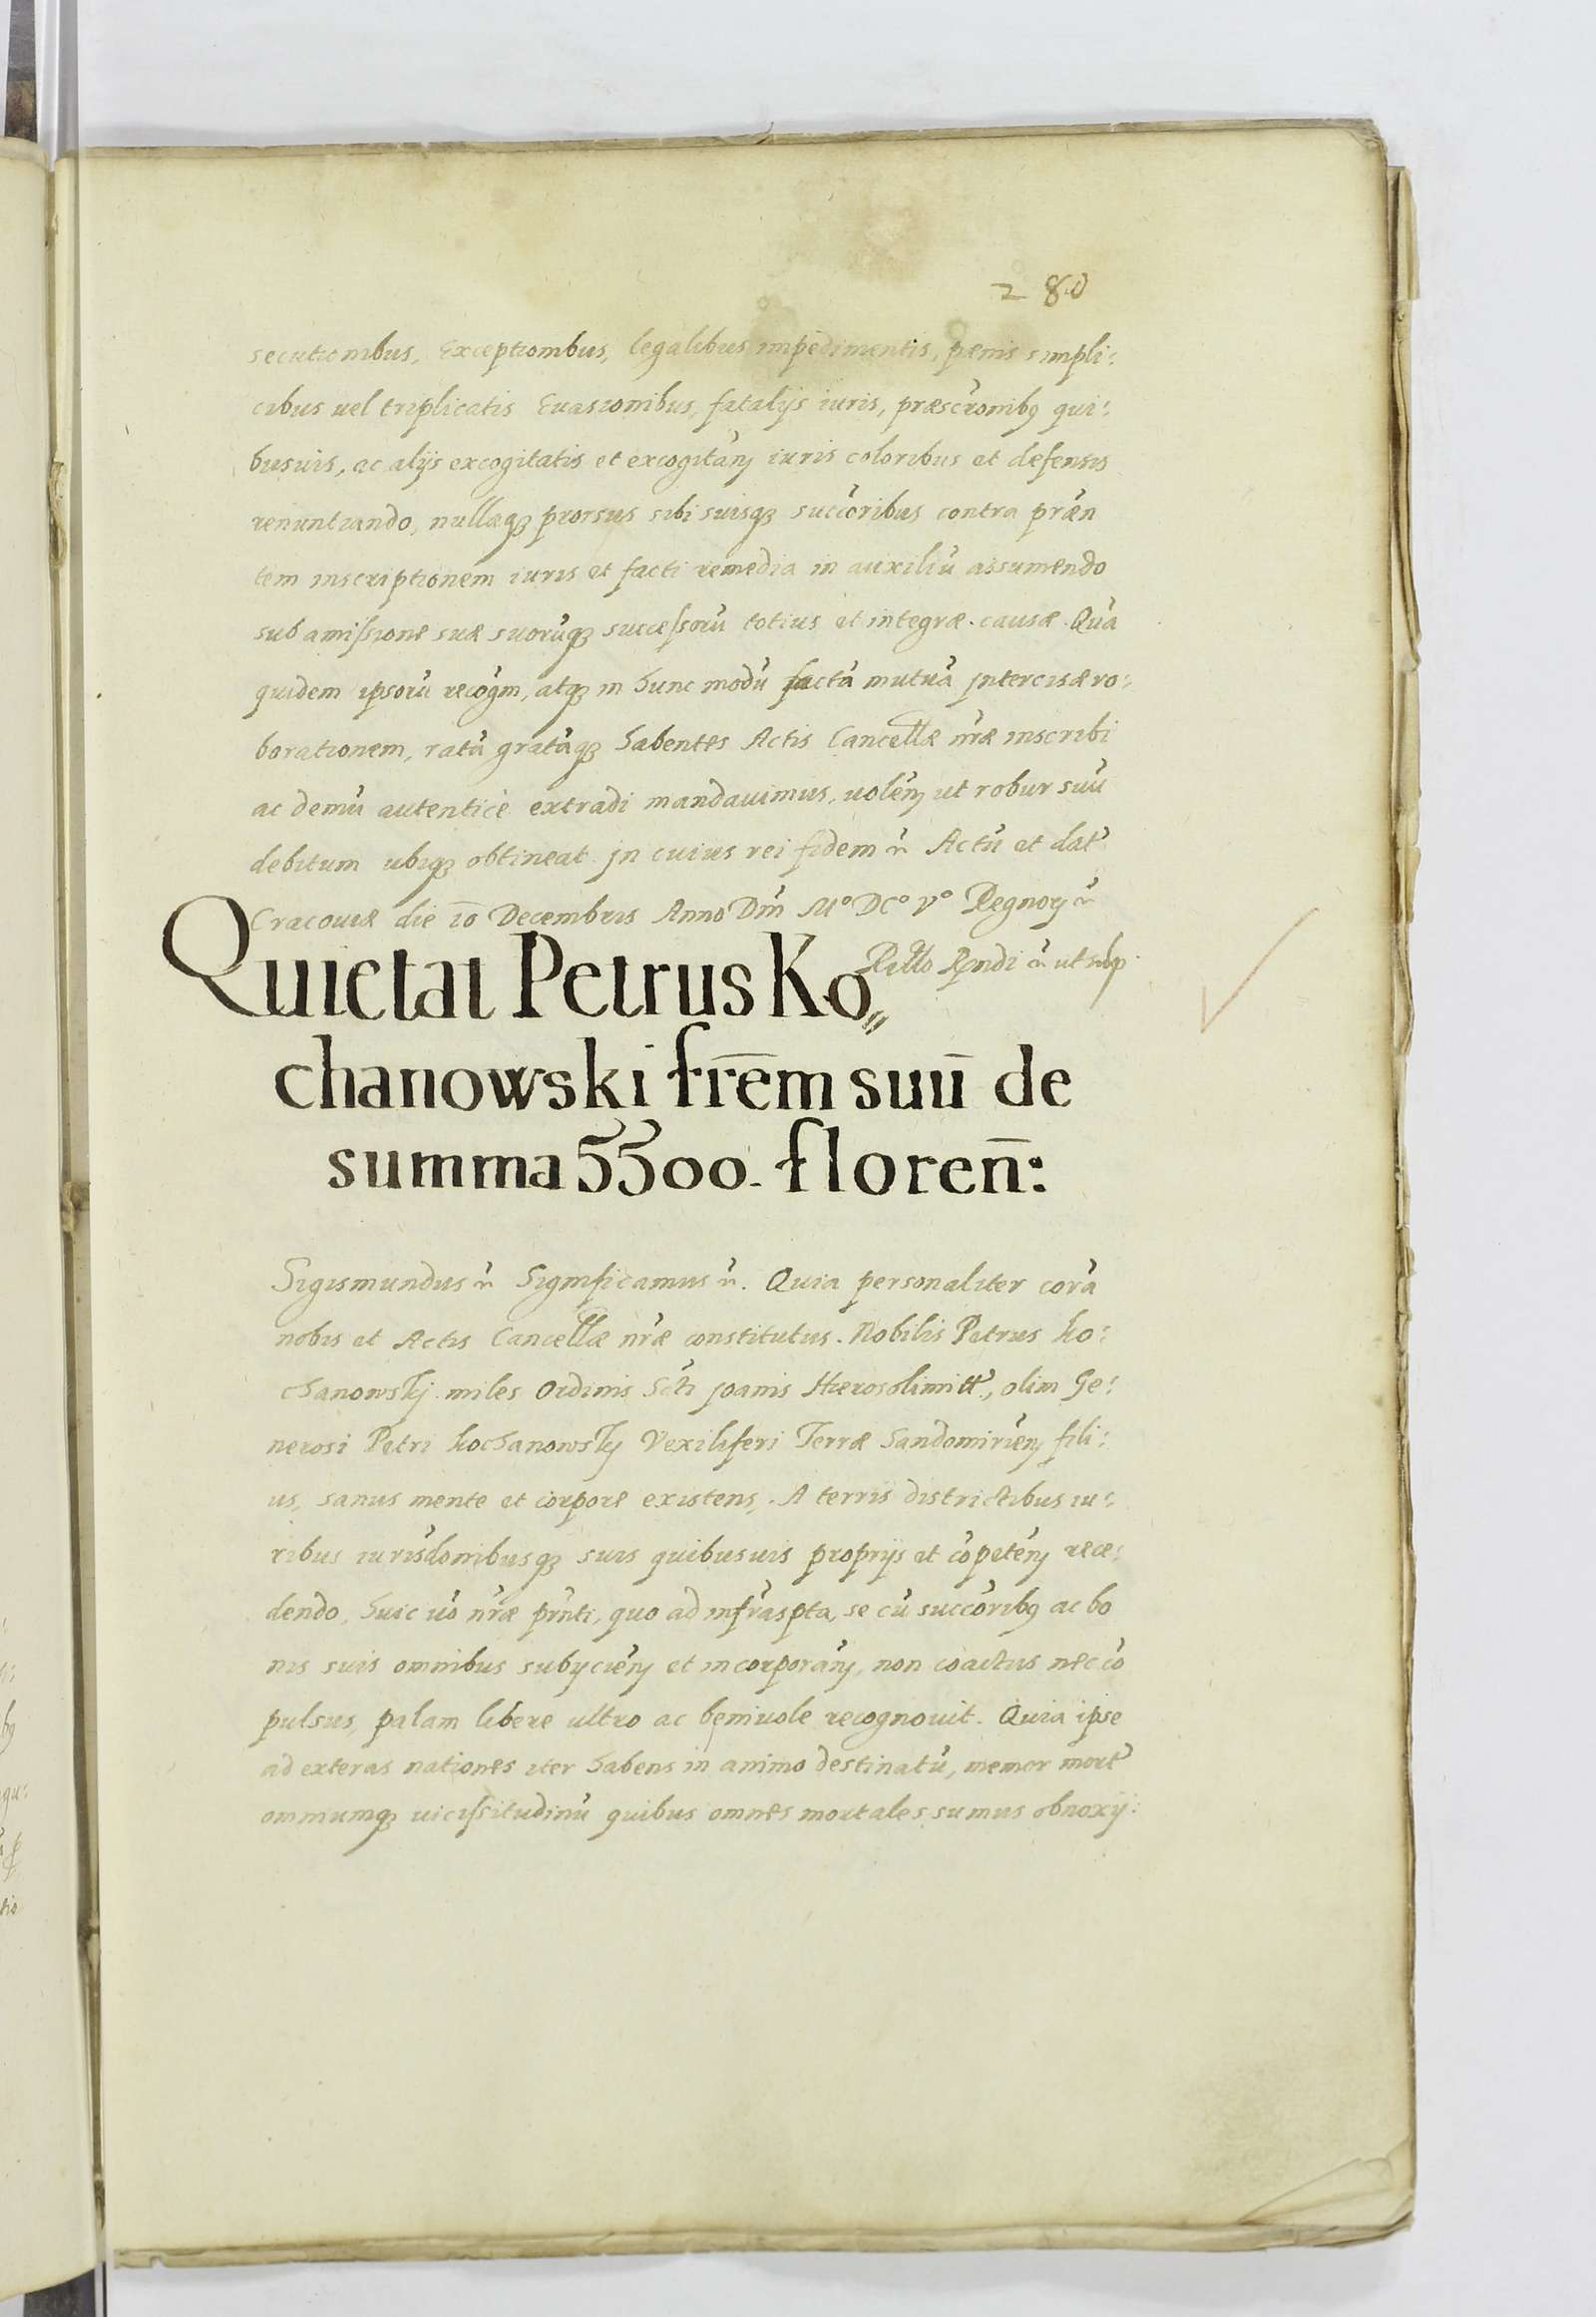 280
secutionibus, Exceptionibus, legalibus impedimentis, pænis simpli:
cibus uel triplicatis Euasionibus, fatalijs iuris, præscrionibꝰ qui:
busuis, ac alijs excogitatis et excogitañ iuris coloribus et defensis
renuntiando, nullaqꝫ prorsus sibi suisqꝫ succoribus contra præn
tem inscriptionem iuris et facti remedia in auxiliũ assumendo
sub amissione suæ suorũqꝫ successorũ totius et integræ causæ. Quã
quidem ipsorũ recogm, atqꝫ in hunc modũ factã mutuã intercisæ ro:
borationem, ratã gratãqꝫ habentes Actis Cancellæ nræ inscribi
ac demũ autenticè extradi mandauimus, uoleñ ut robur suũ
debitum ubiqꝫ obtineat. jn cuius rei fidem ẽ Actũ et dat
Cracouiæ die 10 Decembris Anno Dñi Mº DCº Vº Regnoꝝ ẽ
Rltlo Rndi ẽ ut sup
Quietat Petrus Ko„
chanowski frēm suū de
summa 5500. floreñ:
Sigismundus ẽ Significamus ẽ. Quia personaliter corã
nobis et Actis Cancellæ nræ constitutus. Nobilis Petrus Ko:
chanowskj miles Ordinis Scti joanis Hierosolimitt, olim Ge:
nerosi Petri Kochanowskj Vexiliferi Terræ Sandomirieñ fili:
us, sanus mente et corpore existens. A terris districtibus iu:
ribus iurisdonibusqꝫ suis quibusuis proprijs et cõpeteñ rece:
dendo, huic uo nræ prnti, quo ad infrasptа, se cũ succoribꝰ ac bo
nis suis omnibus subijcieñ et incorporañ, non coactus nec cõ
pulsus, palam libere ultro ac beniuole recognouit. Quia ipse
ad exteras nationes iter habens in animo destinatũ, memor mort
omniumqꝫ uicissitudinũ quibus omnes mortales sumus obnoxij: